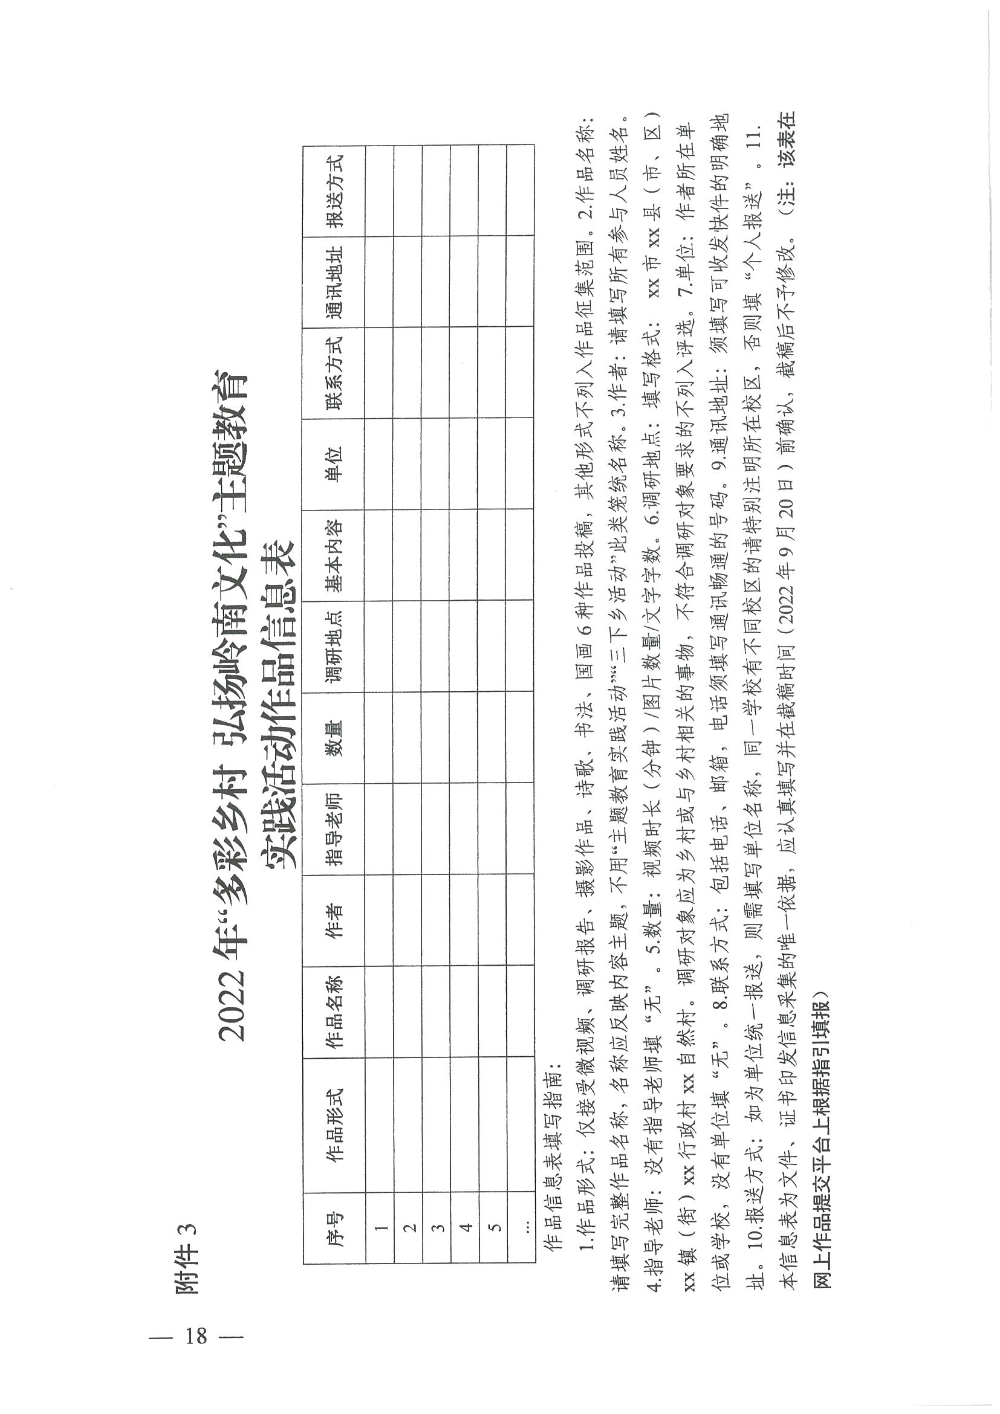 附件 3
2022 年“多彩乡村 弘扬岭南文化”主题教育
实践活动作品信息表
序号 作品形式 作品名称 作者 指导老师 数量 调研地点 基本内容 单位 联系方式 通讯地址 报送方式
1
2
3
4
5
…
作品信息表填写指南：
1.作品形式：仅接受微视频、调研报告、摄影作品、诗歌、书法、国画 6 种作品投稿，其他形式不列入作品征集范围。2.作品名称：
请填写完整作品名称，名称应反映内容主题，不用“主题教育实践活动”“三下乡活动”此类笼统名称。3.作者：请填写所有参与人员姓名。
4.指导老师：没有指导老师填“无”。5.数量：视频时长（分钟）/图片数量/文字字数。6.调研地点：填写格式： xx 市 xx 县（市、区）
xx 镇（街）xx 行政村 xx 自然村。调研对象应为乡村或与乡村相关的事物，不符合调研对象要求的不列入评选。7.单位：作者所在单
位或学校，没有单位填“无”。8.联系方式：包括电话、邮箱，电话须填写通讯畅通的号码。9.通讯地址：须填写可收发快件的明确地
址。10.报送方式：如为单位统一报送，则需填写单位名称，同一学校有不同校区的请特别注明所在校区，否则填“个人报送”。11.
本信息表为文件、证书印发信息采集的唯一依据，应认真填写并在截稿时间（2022 年 9 月 20 日）前确认，截稿后不予修改。（注：该表在
网上作品提交平台上根据指引填报）
— 18 —